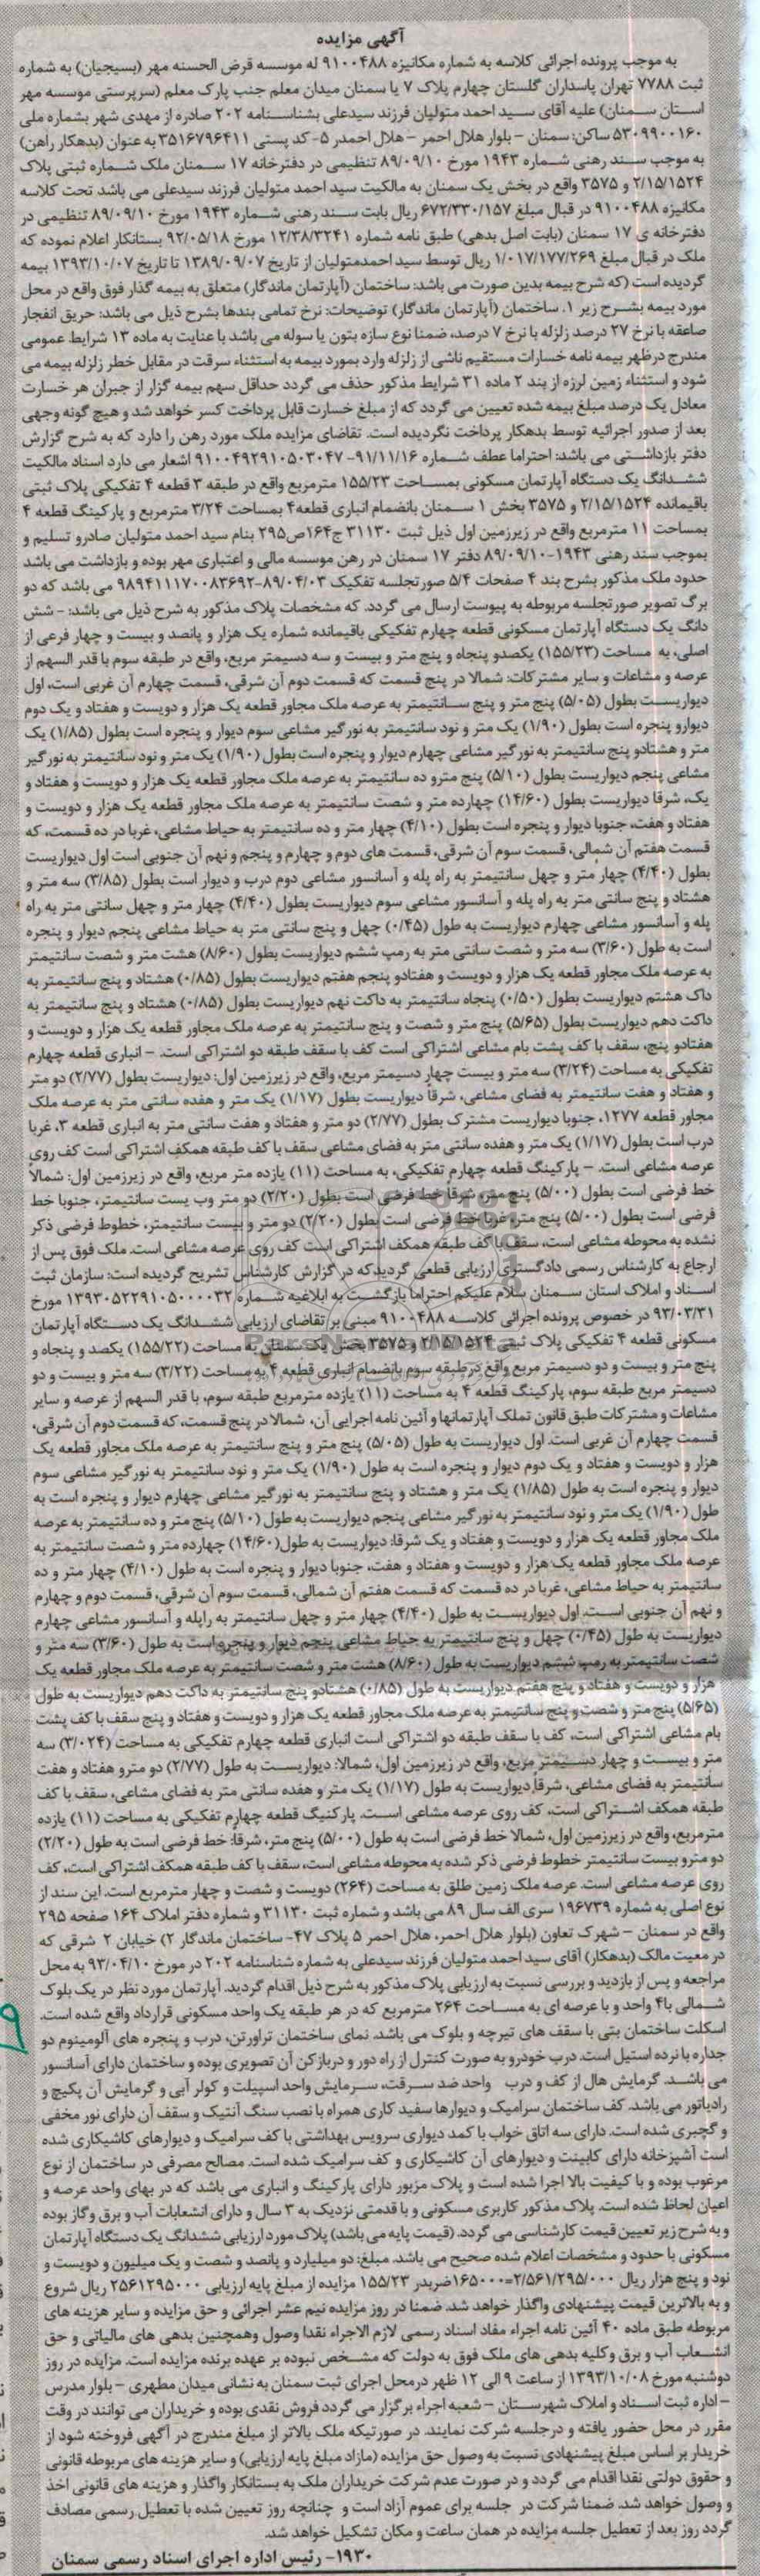 آگهی مزایده
به موجب پرونده اجرائی کلاسه به شماره مکانیزه ۹۱۰۰۴۸۸ له موسسه قرض الحسنه مهر (بسیجیان) به شماره
ثبت ۷۷۸۸ تهران پاسداران گلستان چهارم پلاک ۷ یا سمنان میدان معلم جنب پارک معلم (سرپرستی موسسه مهر
استان سمنان) علیه آقای سید احمد متولیان فرزند سیدعلی بشناسنامه ۲۰۲ صادره از مهدی شهر بشماره ملی
۵۳۰۹۹۰۰۱۶۰ ساکن: سمنان - بلوار هلال احمر - هلال احمدر ۵- کد پستی ۳۵۱۶۷۹۶۴۱۱ به عنوان (بدهکار راهن)
به موجب سند رهنی شماره ۱۹۴۳ مورخ ۸۹/۰۹/۱۰ تنظیمی در دفترخانه ۱۷ سمنان ملک شماره ثبتی پلاک
۲/۱۵/۱۵۲۴ و ۳۵۷۵ واقع در بخش یک سمنان به مالکیت سید احمد متولیان فرزند سیدعلی می باشد تحت کلاسه
مکانیزه ۹۱۰۰۴۸۸ در قبال مبلغ ۶۷۲/۳۳۰/۱۵۷ ریال بابت سند رهنی شماره ۱۹۴۳ مورخ ۸۹/۰۹/۱۰ تنظیمی در
دفترخانه ی ۱۷ سمنان (بابت اصل بدهی) طبق نامه شماره ۱۲/۳۸/۳۲۴۱ مورخ ۹۲/۰۵/۱۸ بستانکار اعلام نموده که
ملک در قبال مبلغ ۱/۰۱۷/۱۷۷/۲۶۹ ریال توسط سید احمدمتولیان از تاریخ ۱۳۸۹/۰۹/۰۷ تا تاریخ ۱۳۹۳/۱۰/۰۷ بیمه
گردیده است (که شرح بیمه بدین صورت می باشد: ساختمان (آپارتمان ماندگار) متعلق به بیمه گذار فوق واقع در محل
مورد بیمه بشرح زیر ۱. ساختمان (آپارتمان ماندگار) توضیحات: نرخ تمامی بندها بشرح ذیل می باشد: حریق انفجار
صاعقه با نرخ ۲۷ درصد زلزله با نرخ ۷ درصد، ضمنا نوع سازه بتون یا سوله می باشد با عنایت به ماده ۱۳ شرایط عمومی
مندرج درظهر بیمه نامه خسارات مستقیم ناشی از زلزله وارد بمورد بیمه به استثناء سرقت در مقابل خطر زلزله بیمه می
شود و استثناء زمین لرزه از بند ۲ ماده ۳۱ شرایط مذکور حذف می گردد حداقل سهم بیمه گزار از جبران هر خسارت
معادل یک درصد مبلغ بیمه شده تعیین می گردد که از مبلغ خسارت قابل پرداخت کسر خواهد شد و هیچ گونه وجهی
بعد از صدور اجرائیه توسط بدهکار پرداخت نگردیده است. تقاضای مزایده ملک مورد رهن را دارد که به شرح گزارش
دفتر بازداشتی می باشد: احتراما عطف شماره ۹۱/۱۱/۱۶- ۹۱۰۰۴۹۲۹۱۰۵۰۳۰۴۷ اشعار می دارد اسناد مالکیت
ششدانگ یک دستگاه آپارتمان مسکونی بمساحت ۱۵۵/۲۳ مترمربع واقع در طبقه ۳ قطعه ۴ تفکیکی پلاک ثبتی
باقیمانده ۲/۱۵/۱۵۲۴ و ۳۵۷۵ بخش ۱ سمنان بانضمام انباری قطعه۴ بمساحت ۳/۲۴ مترمربع و پارکینگ قطعه ۴
بمساحت ۱۱ مترمربع واقع در زیرزمین اول ذیل ثبت ۳۱۱۳۰ ج۱۶۴ص۲۹۵ بنام سید احمد متولیان صادرو تسلیم و
بموجب سند رهنی ۱۹۴۳-۸۹/۰۹/۱۰ دفتر ۱۷ سمنان در رهن موسسه مالی و اعتباری مهر بوده و بازداشت می باشد
حدود ملک مذکور بشرح بند ۴ صفحات ۵/۴ صورتجلسه تفکیک ۸۹/۰۴/۰۳-۹۸۹۴۱۱۱۷۰۰۸۳۶۹۲ می باشد که دو
برگ تصویر صورتجلسه مربوطه به پیوست ارسال می گردد. که مشخصات پلاک مذکور به شرح ذیل می باشد: - شش
دانگ یک دستگاه آپارتمان مسکونی قطعه چهارم تفکیکی باقیمانده شماره یک هزار و پانصد و بیست و چهار فرعی از
اصلی، به مساحت (۱۵۵/۲۳) یکصدو پنجاه و پنج متر و بیست و سه دسیمتر مربع، واقع در طبقه سوم با قدر السهم از
عرصه و مشاعات و سایر مشترکات: شمالا در پنج قسمت که قسمت دوم آن شرقی، قسمت چهارم آن غربی است، اول
دیواریست بطول (۵/۰۵) پنج متر و پنج سانتیمتر به عرصه ملک مجاور قطعه یک هزار و دویست و هفتاد و یک دوم
دیوارو پنجره است بطول (۱/۹۰) یک متر و نود سانتیمتر به نورگیر مشاعی سوم دیوار و پنجره است بطول (۱/۸۵) یک
متر و هشتادو پنج سانتیمتر به نورگیر مشاعی چهارم دیوار و پنجره است بطول (۱/۹۰) یک متر و نود سانتیمتر به نورگیر
مشاعی پنجم دیواریست بطول (۵/۱۰) پنج مترو ده سانتیمتر به عرصه ملک مجاور قطعه یک هزار و دویست و هفتاد و
یک، شرقا دیواریست بطول (۱۴/۶۰) چهارده متر و شصت سانتیمتر به عرصه ملک مجاور قطعه یک هزار و دویست و
هفتاد و هفت، جنوبا دیوار و پنجره است بطول (۴/۱۰) چهار متر و ده سانتیمتر به حیاط مشاعی، غربا در ده قسمت، که
قسمت هفتم آن شمالی، قسمت سوم آن شرقی، قسمت های دوم و چهارم و پنجم و نهم آن جنوبی است اول دیواریست
بطول (۴/۴۰) چهار متر و چهل سانتیمتر به راه پله و آسانسور مشاعی دوم درب و دیوار است بطول (۳/۸۵) سه متر و
هشتاد و پنج سانتی متر به راه پله و آسانسور مشاعی سوم دیواریست بطول (۴/۴۰) چهار متر و چهل سانتی متر به راه
پله و آسانسور مشاعی چهارم دیواریست به طول (۰/۴۵) چهل و پنج سانتی متر به حیاط مشاعی پنجم دیوار و پنجره
است به طول (۳/۶۰) سه متر و شصت سانتی متر به رمپ ششم دیواریست بطول (۸/۶۰) هشت متر و شصت سانتیمتر
به عرصه ملک مجاور قطعه یک هزار و دویست و هفتادو پنجم هفتم دیواریست بطول (۰/۸۵) هشتاد و پنج سانتیمتر به
داک هشتم دیواریست بطول (۰/۵۰) پنجاه سانتیمتر به داکت نهم دیواریست بطول (۰/۸۵) هشتاد و پنج سانتیمتر به
داکت دهم دیواریست بطول (۵/۶۵) پنج متر و شصت و پنج سانتیمتر به عرصه ملک مجاور قطعه یک هزار و دویست و
هفتادو پنج، سقف با کف پشت بام مشاعی اشتراکی است کف با سقف طبقه دو اشتراکی است. - انباری قطعه چهارم
تفکیکی به مساحت (۳/۲۴) سه متر و بیست چهار دسیمتر مربع، واقع در زیرزمین اول: دیواریست بطول (۲/۷۷) دو متر
و هفتاد و هفت سانتیمتر به فضای مشاعی، شرقاً دیواریست بطول (۱/۱۷) یک متر و هفده سانتی متر به عرصه ملک
مجاور قطعه ۱۲۷۷، جنوبا دیواریست مشترک بطول (۲/۷۷) دو متر و هفتاد و هفت سانتی متر به انباری قطعه ۳، غربا
درب است بطول (۱/۱۷) یک متر و هفده سانتی متر به فضای مشاعی سقف با کف طبقه همکف اشتراکی است کف روی
عرصه مشاعی است. - پارکینگ قطعه چهارم تفکیکی، به مساحت (۱۱) یازده متر مربع، واقع در زیرزمین اول: شمالاً
خط فرضی است بطول (۵/۰۰) پنج متر، شرقا خط فرضی است بطول (۲/۲۰) دو متر وب یست سانتیمتر، جنوبا خط
فرضی است بطول (۵/۰۰) پنج متر، غربا خط فرضی است بطول (۲/۲۰) دو متر و بیست سانتیمتر، خطوط فرضی ذکر
نشده به محوطه مشاعی است، سقف با کف طبقه همکف اشتراکی است کف روی عرصه مشاعی است. ملک فوق پس از
ارجاع به کارشناس رسمی دادگستری ارزیابی قطعی گردیدکه در گزارش کارشناس تشریح گردیده است: سازمان ثبت
اسناد و املاک استان سمنان سلام علیکم احتراما بازگشت به ابلاغیه شماره ۱۳۹۳۰۵۲۲۹۱۰۵۰۰۰۰۳۲ مورخ
۹۳/۰۳/۳۱ در خصوص پرونده اجرائی کلاسه ۹۱۰۰۴۸۸ مبنی بر تقاضای ارزیابی ششدانگ یک دستگاه آپارتمان
مسکونی قطعه ۴ تفکیکی پلاک ثبتی ۲/۱۵/۱۵۲۴ و ۳۵۷۵ بخش یک سمنان به مساحت (۱۵۵/۲۲) یکصد و پنجاه و
پنج متر و بیست و دو دسیمتر مربع واقع درطبقه سوم بانضمام انباری قطعه ۴ به مساحت (۳/۲۲) سه متر و بیست و دو
دسیمتر مربع طبقه سوم، پارکینگ قطعه ۴ به مساحت (۱۱) یازده مترمربع طبقه سوم، با قدر السهم از عرصه و سایر
مشاعات و مشترکات طبق قانون تملک آپارتمانها و آئین نامه اجرایی آن، شمالا در پنج قسمت، که قسمت دوم آن شرقی،
قسمت چهارم آن غربی است. اول دیواریست به طول (۵/۰۵) پنج متر و پنج سانتیمتر به عرصه ملک مجاور قطعه یک
هزار و دویست و هفتاد و یک دوم دیوار و پنجره است به طول (۱/۹۰) یک متر و نود سانتیمتر به نورگیر مشاعی سوم
دیوار و پنجره است به طول (۱/۸۵) یک متر و هشتاد و پنج سانتیمتر به نورگیر مشاعی چهارم دیوار و پنجره است به
طول (۱/۹۰) یک متر و نود سانتیمتر به نورگیر مشاعی پنجم دیواریست به طول (۵/۱۰) پنج متر و ده سانتیمتر به عرصه
ملک مجاور قطعه یک هزار و دویست و هفتاد و یک شرقا: دیواریست به طول(۱۴/۶۰) چهارده متر و شصت سانتیمتر به
عرصه ملک مجاور قطعه یک هزار و دویست و هفتاد و هفت، جنوبا دیوار و پنجره است به طول (۴/۱۰) چهار متر و ده
سانتیمتر به حیاط مشاعی، غربا در ده قسمت که قسمت هفتم آن شمالی، قسمت سوم آن شرقی، قسمت دوم و چهارم
و نهم آن جنوبی است. اول دیواریست به طول (۴/۴۰) چهار متر و چهل سانتیمتر به راپله و آسانسور مشاعی چهارم
دیواریست به طول (۰/۴۵) چهل و پنج سانتیمتر به حیاط مشاعی پنجم دیوار و پنجره است به طول (۳/۶۰) سه متر و
شصت سانتیمتر به رمپ ششم دیواریست به طول (۸/۶۰) هشت متر و شصت سانتیمتر به عرصه ملک مجاور قطعه یک
هزار و دویست و هفتاد و پنج هفتم دیواریست به طول (۰/۸۵) هشتادو پنج سانتیمتر به داکت دهم دیواریست به طول
(۵/۶۵) پنج متر و شصت و پنج سانتیمتر به عرصه ملک مجاور قطعه یک هزار و دویست و هفتاد و پنج سقف با کف پشت
بام مشاعی اشتراکی است، کف با سقف طبقه دو اشتراکی است انباری قطعه چهارم تفکیکی به مساحت (۳/۰۲۴) سه
متر و بیست و چهار دسیمتر مربع، واقع در زیرزمین اول، شمالا: دیواریست به طول (۲/۷۷) دو مترو هفتاد و هفت
سانتیمتر به فضای مشاعی، شرقاً دیواریست به طول (۱/۱۷) یک متر و هفده سانتی متر به فضای مشاعی، سقف با کف
طبقه همکف اشتراکی است، کف روی عرصه مشاعی است. پارکینگ قطعه چهارم تفکیکی به مساحت (۱۱) یازده
مترمربع، واقع در زیرزمین اول، شمالا خط فرضی است به طول (۵/۰۰) پنج متر، شرقاً: خط فرضی است به طول (۲/۲۰)
دو مترو بیست سانتیمتر خطوط فرضی ذکر شده به محوطه مشاعی است، سقف با کف طبقه همکف اشتراکی است، کف
روی عرصه مشاعی است. عرصه ملک زمین طلق به مساحت (۲۶۴) دویست و شصت و چهار مترمربع است. این سند از
نوع اصلی به شماره ۱۹۶۷۳۹ سری الف سال ۸۹ می باشد و شماره ثبت ۳۱۱۳۰ و شماره دفتر املاک ۱۶۴ صفحه ۲۹۵
واقع در سمنان - شهرک تعاون (بلوار هلال احمر، هلال احمر ۵ پلاک ۴۷- ساختمان ماندگار ۲) خیابان ۲ شرقی که
در معیت مالک (بدهکار) آقای سید احمد متولیان فرزند سیدعلی به شماره شناسنامه ۲۰۲ در مورخ ۹۳/۰۴/۱۰ به محل
مراجعه و پس از بازدید و بررسی نسبت به ارزیابی پلاک مذکور به شرح ذیل اقدام گردید. آپارتمان مورد نظر در یک بلوک
شمالی با۴ واحد و با عرصه ای به مساحت ۲۶۴ مترمربع که در هر طبقه یک واحد مسکونی قرارداد واقع شده است.
اسکلت ساختمان بتی با سقف های تیرچه و بلوک می باشد. نمای ساختمان تراورتن، درب و پنجره های آلومینوم دو
جداره با نرده استیل است. درب خودرو به صورت کنترل از راه دور و دربازکن آن تصویری بوده و ساختمان دارای آسانسور
می باشد. گرمایش هال از کف و درب واحد ضد سرقت، سرمایش واحد اسپیلت و کولر آبی و گرمایش آن پکیچ و
رادیاتور می باشد. کف ساختمان سرامیک و دیوارها سفید کاری همراه با نصب سنگ آنتیک و سقف آن دارای نور مخفی
و گچبری شده است. دارای سه اتاق خواب با کمد دیواری سرویس بهداشتی با کف سرامیک و دیوارهای کاشیکاری شده
است آشپزخانه دارای کابینت و دیوارهای آن کاشیکاری و کف سرامیک شده است. مصالح مصرفی در ساختمان از نوع
مرغوب بوده و با کیفیت بالا اجرا شده است و پلاک مزبور دارای پارکینگ و انباری می باشد که در بهای واحد عرصه و
اعیان لحاظ شده است. پلاک مذکور کاربری مسکونی و با قدمتی نزدیک به ۳ سال و دارای انشعابات آب و برق و گاز بوده
و به شرح زیر تعیین قیمت کارشناسی می گردد. (قیمت پایه می باشد) پلاک مورد ارزیابی ششدانگ یک دستگاه آپارتمان
مسکونی با حدود و مشخصات اعلام شده صحیح می باشد. مبلغ: دو میلیارد و پانصد و شصت و یک میلیون و دویست و
نود و پنج هزار ریال ۲/۵۶۱/۲۹۵/۰۰۰=۱۶۵۰۰۰۰۰ضربدر ۱۵۵/۲۳ مزایده از مبلغ پایه ارزیابی ۲۵۶۱۲۹۵۰۰۰ ریال شروع
و به بالاترین قیمت پیشنهادی واگذار خواهد شد. ضمنا در روز مزایده نیم عشر اجرائی و حق مزایده و سایر هزینه های
مربوطه طبق ماده ۴۰ آئین نامه اجراء مفاد اسناد رسمی لازم الاجراء نقدا وصول وهمچنین بدهی های مالیاتی و حق
انشعاب آب و برق و کلیه بدهی های ملک فوق به دولت که مشخص نبوده بر عهده برنده مزایده است. مزایده در روز
دوشنبه مورخ ۱۳۹۳/۱۰/۰۸ از ساعت ۹ الی ۱۲ ظهر درمحل اجرای ثبت سمنان به نشانی میدان مطهری - بلوار مدرس
- اداره ثبت اسناد و املاک شهرستان - شعبه اجراء برگزار می گردد فروش نقدی بوده و خریداران می توانند در وقت
مقرر در محل حضور یافته و درجلسه شرکت نمایند. در صورتیکه ملک بالاتر از مبلغ مندرج در آگهی فروخته شود از
خریدار بر اساس مبلغ پیشنهادی نسبت به وصول حق مزایده (مازاد مبلغ پایه ارزیابی) و سایر هزینه های مربوطه قانونی
و حقوق دولتی نقدا اقدام می گردد و در صورت عدم شرکت خریداران ملک به بستانکار واگذار و هزینه های قانونی اخذ
و وصول خواهد شد. ضمنا شرکت در جلسه برای عموم آزاد است و چنانچه روز تعیین شده با تعطیل رسمی مصادف
گردد روز بعد از تعطیل جلسه مزایده در همان ساعت و مکان تشکیل خواهد شد.
۱۹۳۰- رئیس اداره اجرای اسناد رسمی سمنان